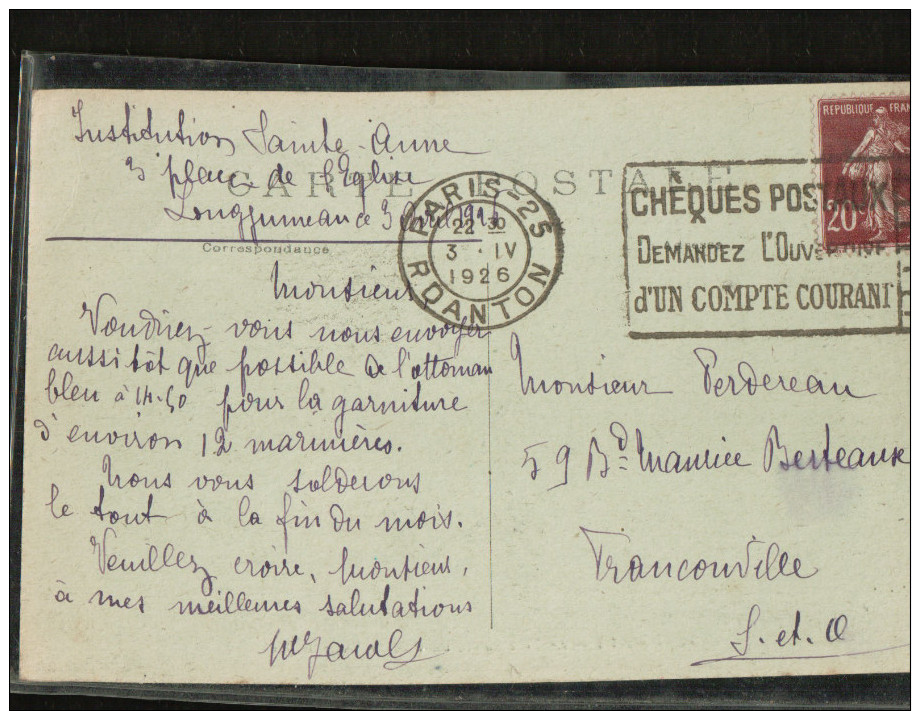 Institution Sainte-Anne
3 place de l'Eglise
Longjumeau ce 3 Avril
CARTE POSTALE
Correspondance
PARIS-25
22 30
3 · IV
1926
R DANTON
CHÈQUES POSTAUX
DEMANDEZ L'OUVERTURE
d'UN COMPTE COURANT
REPUBLIQUE FRAN
20
Monsieur
Voudriez vous nous envoyer
aussitôt que possible de l'ottoman
bleu à 14.50 pour la garniture
d'environ 12 marinières.
Nous vous solderons
le tout à la fin du mois.
Veuillez croire, Monsieur,
à mes meilleures salutations
Monsieur Perdereau
59 Bd Maurice Berteaux
Franconville
S. et. O